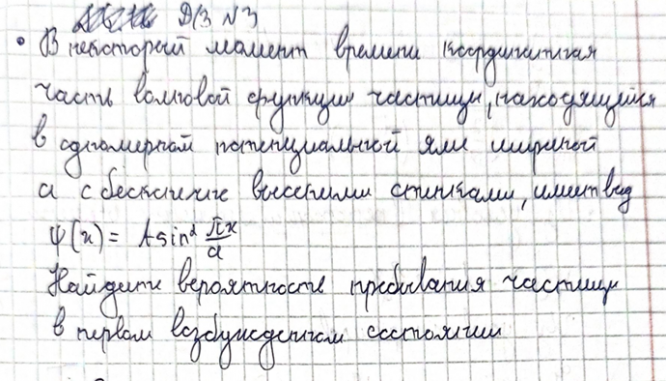 ДЗ №3
• В некоторый момент времени координатная
часть волновой функции частицы, находящейся
в одномерной потенциальной яме шириной
a с бесконечно высокими стенками, имеет вид
ψ(x) = A sin² πx/a
Найдите вероятность пребывания частицы
в первом возбужденном состоянии